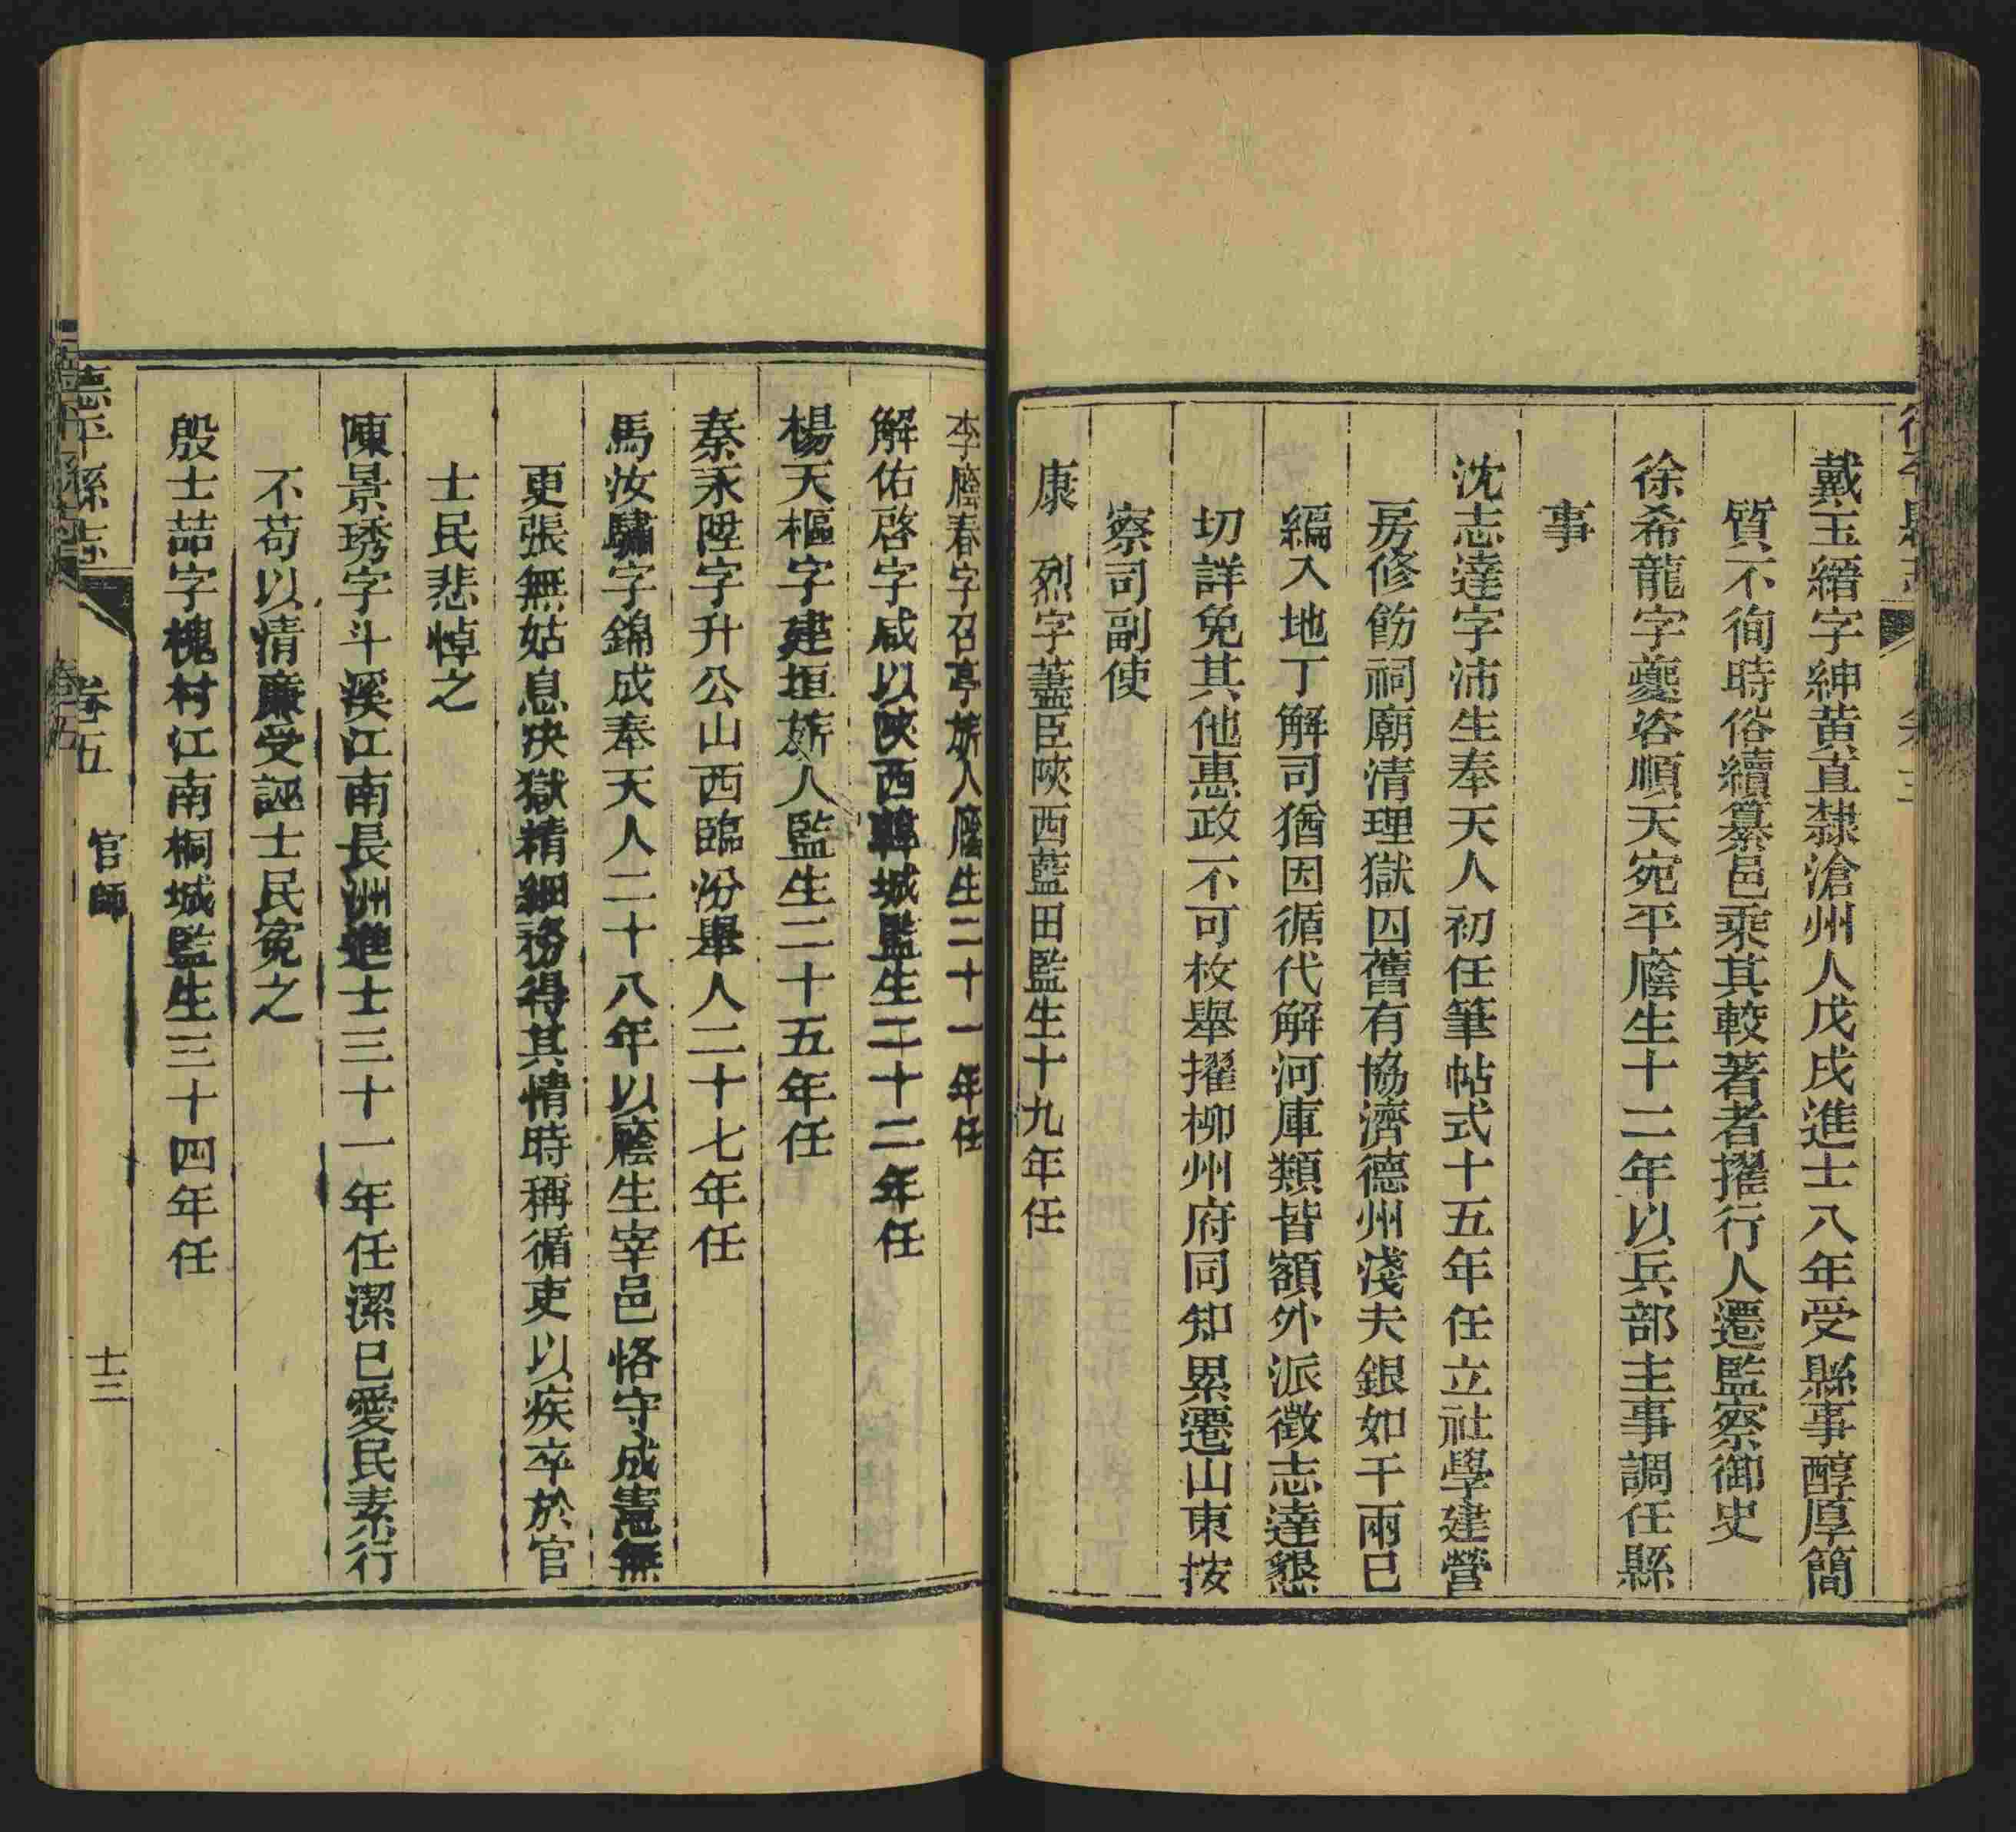 戴玉縉字紳黄直隸滄州人戊戌進士八年受縣事醇厚簡
質不徇時俗續纂邑乘其較著者擢行人遷監察御史
徐希龍字夔咨順天宛平廕生十二年以兵部主事調任縣
事
沈志達字沛生奉天人初任筆帖式十五年任立社學建營
房修飭祠廟清理獄囚舊有協濟德州淺夫銀如干兩已
編入地丁解司猶因循代解河庫類皆額外派徵志達懇
切詳免其他惠政不可枚舉擢柳州府同知累遷山東按
察司副使
康　烈字藎臣陝西藍田監生十九年任
李廕春字召亭旂人廕生二十一年任
解佑啓字咸以陝西韓城監生二十二年任
楊天樞字建垣旂人監生二十五年任
秦永陞字升公山西臨汾舉人二十七年任
馬汝驌字錦成奉天人二十八年以廕生宰邑恪守成憲無
更張無姑息决獄精細務得其情時稱循吏以疾卒於官
士民悲悼之
陳景琇字斗溪江南長洲進士三十一年任潔已愛民素行
不苟以情廉受誣士民寃之
殷士喆字槐村江南桐城監生三十四年任
德平縣志　卷五　官師　十三